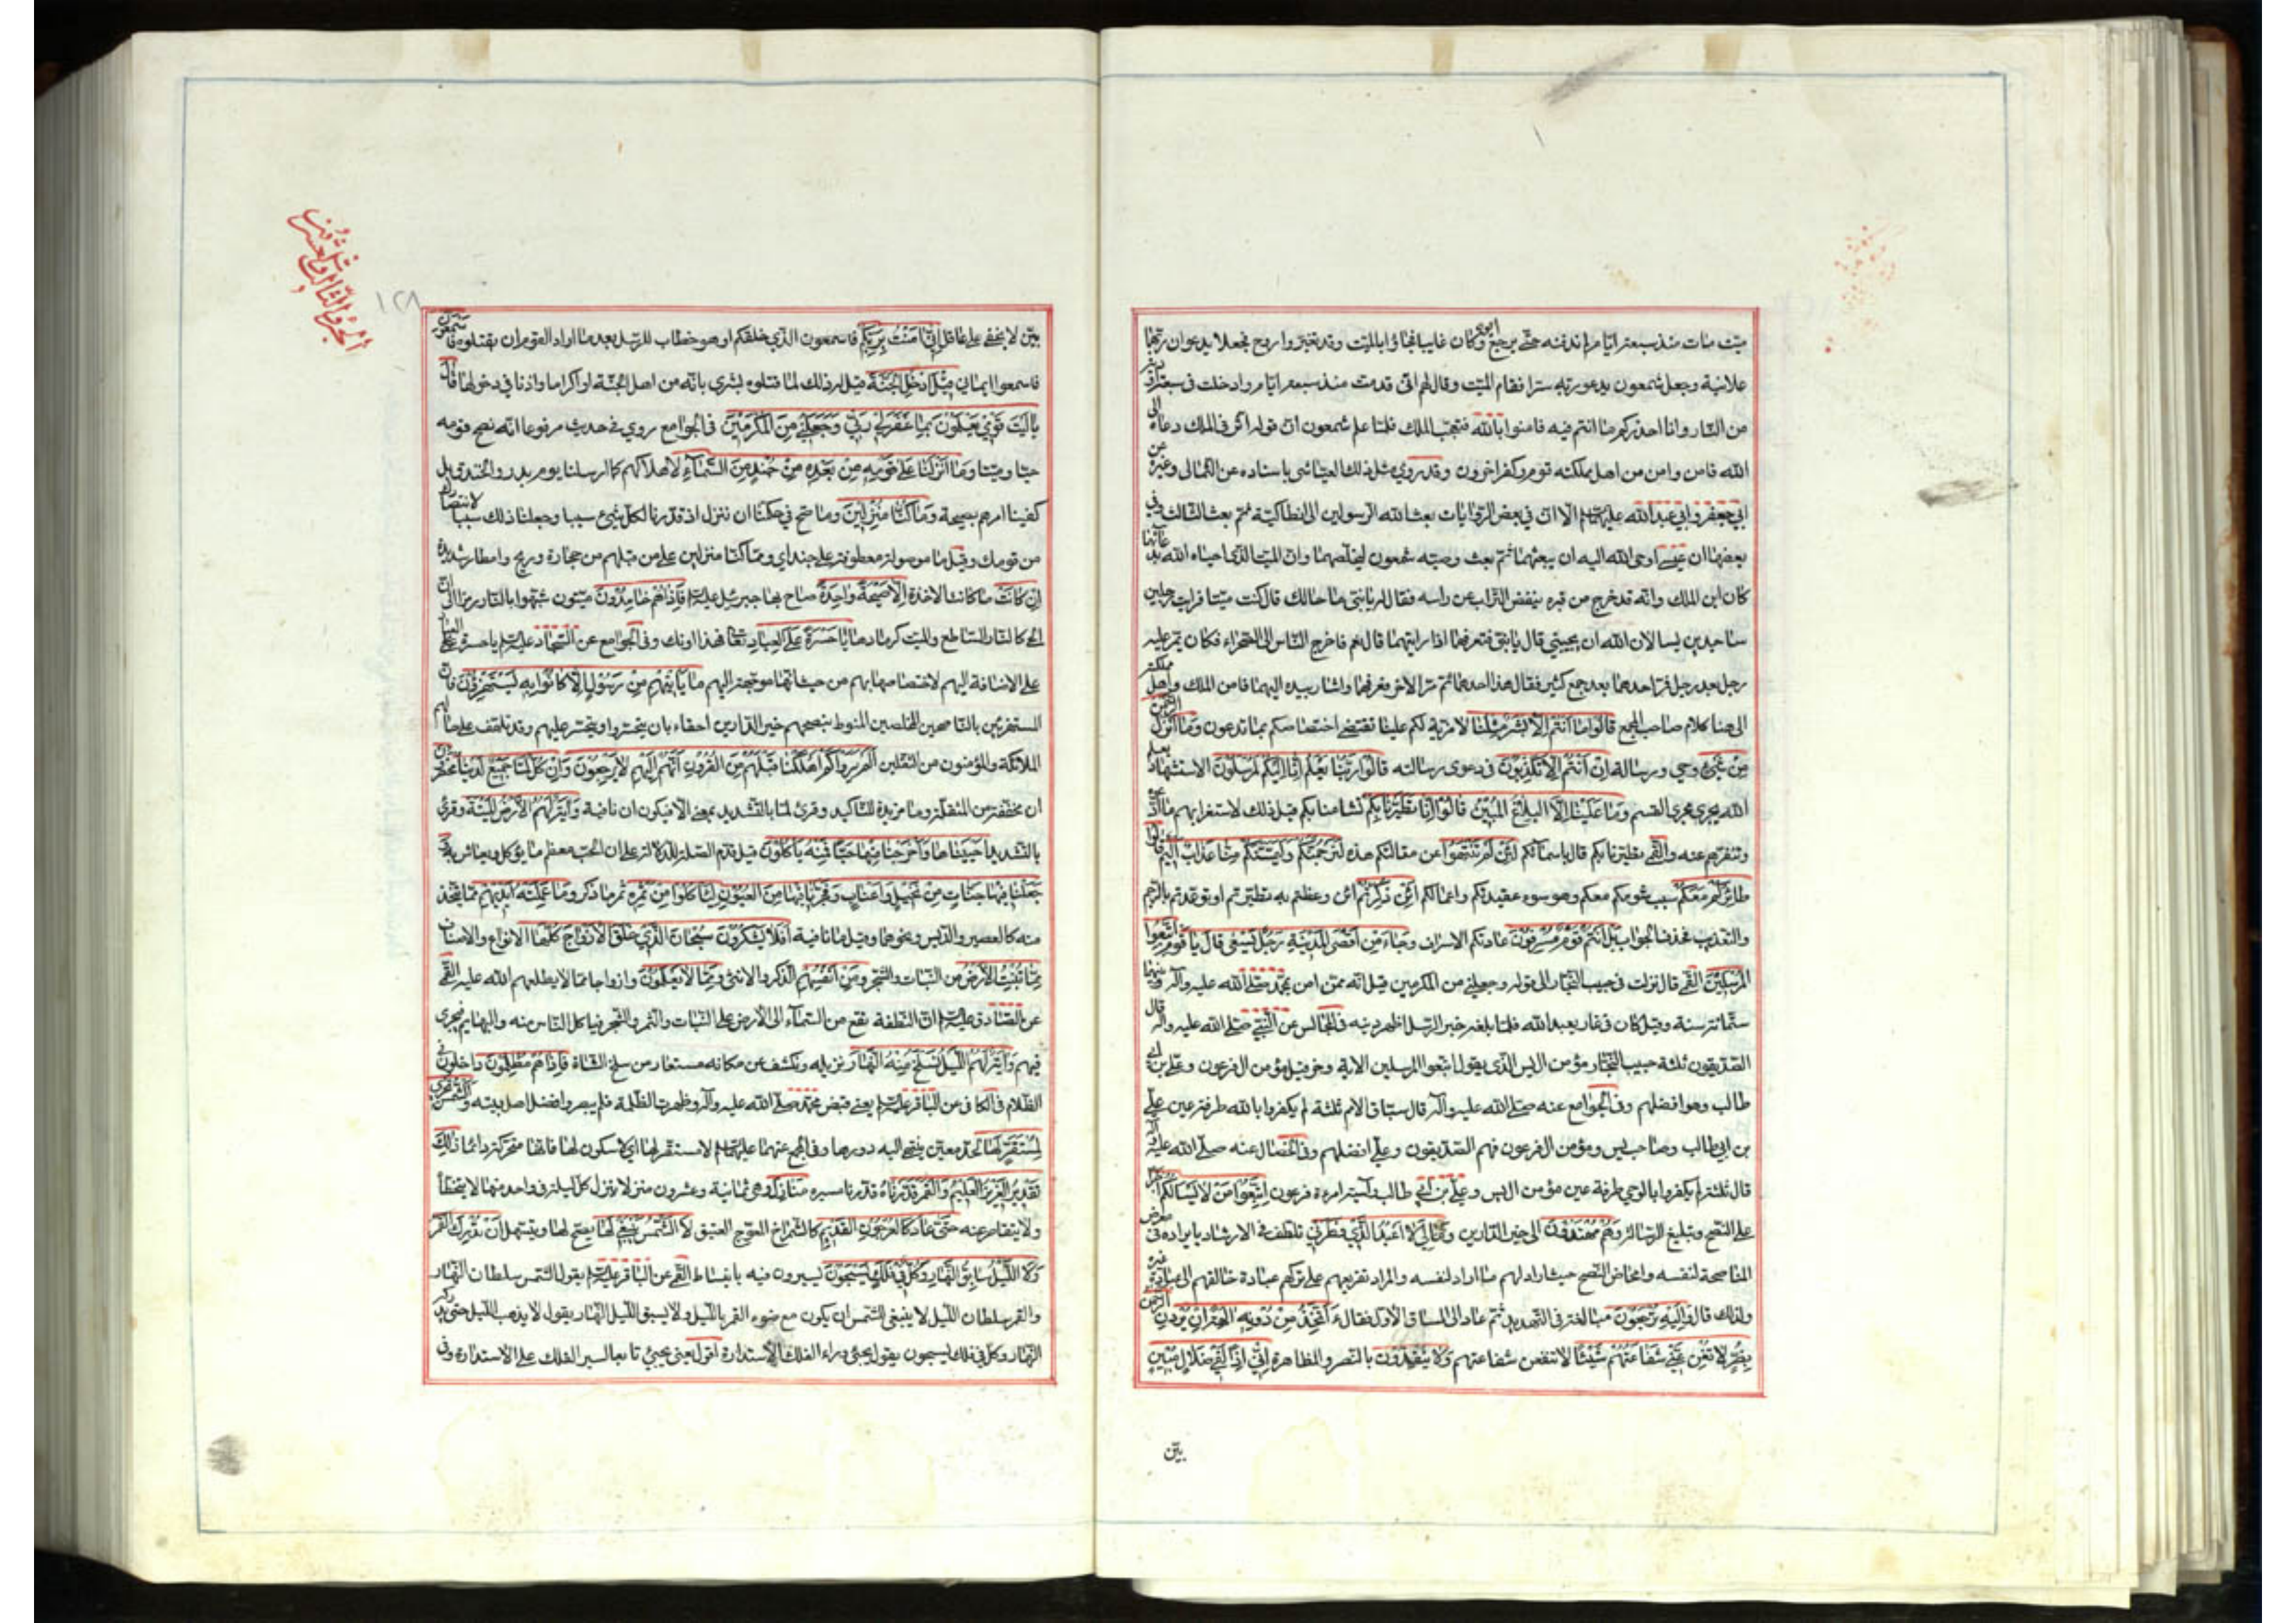 ميّت مات منذ سبعة ايّام لم اندفنه حتّى يرجع ابوه وكان غايبا فجاؤا بالميّت وقد تغيّر واروح فجعلا يدعوان ربّهما
علانية وجعل شمعون يدعو ربّه سرّا فقام الميّت وقال لهم انّى قدمت منذ سبعة ايّام وادخلت فى سبعة اودية
من النّار وانا احذركم ما انتم فيه فامنوا بالله فتعجّب الملك فلمّا علم شمعون انّ قوله اثّر فى الملك دعاه الى
الله فامن وامن من اهل مملكته قوم وكفر اخرون وقد روى مثل ذلك العيّاشى باسناده عن الثمالى وغيره عن
ابى جعفر وابى عبد الله عليهما السلم الّا انّ فى بعض الرّوايات بعث الله الرّسولين الى انطاكيّة ثمّ بعث الثالث وفى
بعضها ان عيسى اوحى الله اليه ان يبعثهما ثمّ بعث وصيّه شمعون ليخلّصهما وانّ الميّت الذى احياه الله بدعائهما
كان ابن الملك وانّه قد خرج من قبره ينفض التّراب عن راسه فقال له يا بنىّ ما حالك قال كنت ميّتا فرايت رجلين
ساجدين يسالان الله ان يحيينى قال يا بنىّ فتعرفهما اذا رايتهما قال نعم فاخرج النّاس الى الصّحراء فكان يمرّ عليه
رجل بعد رجل فمرّ احدهما بعد جمع كثير فقال هذا احدهما ثمّ مرّ الاخر فعرفهما واشار بيده اليهما فامن الملك واهل مملكته
الى هنا كلام صاحب المجمع قالوا ما انتم الّا بشر مثلنا لا مزية لكم علينا تقتضى اختصاصكم بما تدعون وما انزل الرّحمن
من شىء وحى ورسالة ان انتم الّا تكذبون فى دعوى رسالته قالوا ربّنا يعلم انّا اليكم لمرسلون الاستشهاد بعلم
الله يجرى مجرى القسم وما علينا الّا البلاغ المبين قالوا انّا تطيّرنا بكم تشامنا بكم قيل ذلك لاستغرابهم ما ادّعوه
وتنفّرهم عنه والقمّى تطيّرنا بكم قال باسمائكم لئن لم تنتهوا عن مقالتكم هذه لنرجمنّكم وليمسّنّكم منّا عذاب اليم قالوا
طائركم معكم سبب شومكم معكم وهو سوء عقيدتكم واعمالكم ائن ذكّرتم ائن وعظتم به تطيّرتم او توعّدتم بالرّجم
والتعذيب فحذف الجواب بل انتم قوم مسرفون عادتكم الاسراف وجاء من اقصى المدينة رجل يسعى قال يا قوم اتّبعوا
المرسلين القمّى قال نزلت فى حبيب النّجّار الى قوله وجعلنى من المكرمين قيل انّه ممّن امن بمحمّد صلّى الله عليه وآله وبينهما
ستّمائة سنة وقيل كان فى غار يعبد الله فلمّا بلغه خبر الرّسل اظهر دينه فى المجالس عن النّبىّ صلّى الله عليه وآله قال
الصّدّيقون ثلثة حبيب النّجّار مؤمن ال يس الذى يقول اتّبعوا المرسلين الاية وحزقيل مؤمن ال فرعون وعلىّ بن ابى
طالب وهو افضلهم وفى الجوامع عنه صلّى الله عليه وآله قال سبّاق الامم ثلثة لم يكفروا بالله طرفة عين علىّ
بن ابى طالب وصاحب يس ومؤمن ال فرعون فهم الصّدّيقون وعلىّ افضلهم وفى الخصال عنه صلّى الله عليه وآله
قال ثلثة لم يكفروا بالوحى طرفة عين مؤمن ال يس وعلىّ بن ابى طالب وآسية امرءة فرعون اتّبعوا من لا يسالكم اجرا
على النّصح وتبليغ الرّسالة وهم مهتدون الى خير الدّارين ومالى لا اعبد الّذى فطرنى تلطّف فى الارشاد بايراده فى معرض
المناصحة لنفسه وامحاض النّصح حيث اراد لهم ما اراد لنفسه والمراد تقريعهم على تركهم عبادة خالقهم الى عبادة غيره
ولذلك قال واليه ترجعون مبالغة فى التّهديد ثمّ عاد الى المساق الاوّل فقال ءاتّخذ من دونه الهة ان يردن الرّحمن
بضرّ لا تغن عنّى شفاعتهم شيئا لا تنفعنى شفاعتهم ولا ينقذون بالنّصر والمظاهرة انّى اذا لفى ضلال مبين
بيّن
الجزو الثالث والعشرون
١٢٨
بيّن لا يخفى على عاقل انّى امنت بربّكم فاسمعون الّذى خلقكم او هو خطاب للرّسل بعد ما اراد القوم ان يقتلوه فاسمعون
فاسمعوا ايمانى قيل ادخل الجنّة قيل له ذلك لمّا قتلوه بشرى بانّه من اهل الجنّة او اكراما واذنا فى دخولها قال
يا ليت قومى يعلمون بما غفر لى ربّى وجعلنى من المكرمين فى الجوامع روى فى حديث مرفوعا انّه نصح قومه
حيّا وميّتا وما انزلنا على قومه من بعده من جند من السّماء لاهلاكهم كما ارسلنا يوم بدر والخندق بل
كفينا امرهم بصيحة وما كنّا منزلين وما صحّ فى حكمنا ان ننزل اذ قدّرنا لكلّ شىء سببا وجعلنا ذلك سببا لانتصارك
من قومك وقيل ما موصولة معطوفة على جند اى وممّا كنّا منزلين على من قبلهم من حجارة وريح وامطار شديدة
ان كانت ما كانت الاخذة الّا صيحة واحدة صاح بها جبرئيل عليه السلم فاذا هم خامدون ميّتون شبّهوا بالنّار رمزا الى انّ
الحىّ كالنّار السّاطع والميّت كرمادها يا حسرة على العباد تعالى فهذا اونك وفى الجوامع عن السّجّاد عليه السلم يا حسرة العباد
على الاضافة اليهم لاختصاصها بهم من حيث انّها موجّهة اليهم ما ياتيهم من رسول الّا كانوا به يستهزؤن فانّ
المستهزئين بالنّاصحين المخلصين المنوط بنصحهم خير الدّارين احقّاء بان يتحسّروا ويتحسّر عليهم وقد تلهّف على حالهم
الملائكة والمؤمنون من الثّقلين الم يروا كم اهلكنا قبلهم من القرون انّهم اليهم لا يرجعون وان كلّ لمّا جميع لدينا محضرون
ان مخفّفة من المثقّلة وما مزيدة للتّاكيد وقرئ لمّا بالتّشديد بمعنى الّا فيكون ان نافية واية لهم الارض الميتة وقرئ
بالتّشديد احييناها واخرجنا منها حبّا فمنه ياكلون قيل قدّم الصّلة للدّلالة على ان الحبّ معظم ما يؤكل ويعاش به و
جعلنا فيها جنّات من نخيل واعناب وفجّرنا فيها من العيون لياكلوا من ثمره ثمر ما ذكر وما عملته ايديهم ممّا يتّخذ
منه كالعصير والدّبس ونحوهما وقيل ما نافية افلا يشكرون سبحان الّذى خلق الازواج كلّها الانواع والاصناف
ممّا تنبت الارض من النّبات والشّجر ومن انفسهم الذّكر والانثى وممّا لا يعلمون وازواجا ممّا لا يطلعهم الله عليه القمّى
عن الصّادق عليه السلم انّ النّطفة تقع من السّماء الى الارض على النّبات والثّمر والشّجر فياكل النّاس منه والبهايم فيجرى
فيهم واية لهم اللّيل نسلخ منه النّهار نزيله ونكشف عن مكانه مستعار من سلخ الشّاة فاذا هم مظلمون داخلون فى
الظّلام فى الكافى عن الباقر عليه السلم يعنى قبض محمّد صلّى الله عليه وآله وظهرت الظّلمة فلم يبصروا فضل اهل بيته والشّمس تجرى
لمستقرّ لها لحدّ معيّن ينتهى اليه دورها وفى المجمع عنهما عليهما السلم لا مستقرّ لها اى لا سكون لها فانّها متحرّكة دائما ذلك
تقدير العزيز العليم والقمر قدّرناه قدّرنا مسيره منازل وهى ثمانية وعشرون منزلا ينزل كلّ ليلة فى واحد منها لا يتخطّأ
ولا يتقاصر عنه حتّى عاد كالعرجون القديم كالشّمراخ المعوّج العتيق لا الشّمس ينبغى لها يصحّ لها ويتسهّل ان تدرك القمر
ولا اللّيل سابق النّهار وكلّ فى فلك يسبحون يسيرون فيه بانبساط القمّى عن الباقر عليه السلم يقول الشّمس سلطان النّهار
والقمر سلطان اللّيل لا ينبغى للشّمس ان يكون مع ضوء القمر باللّيل ولا يسبق اللّيل النّهار يقول لا يذهب اللّيل حتّى يدركه
النّهار وكلّ فى فلك يسبحون يقول يجىء وراء الفلك بالاستدارة اقول يعنى يجىء تابعا لسير الفلك على الاستدارة وفى